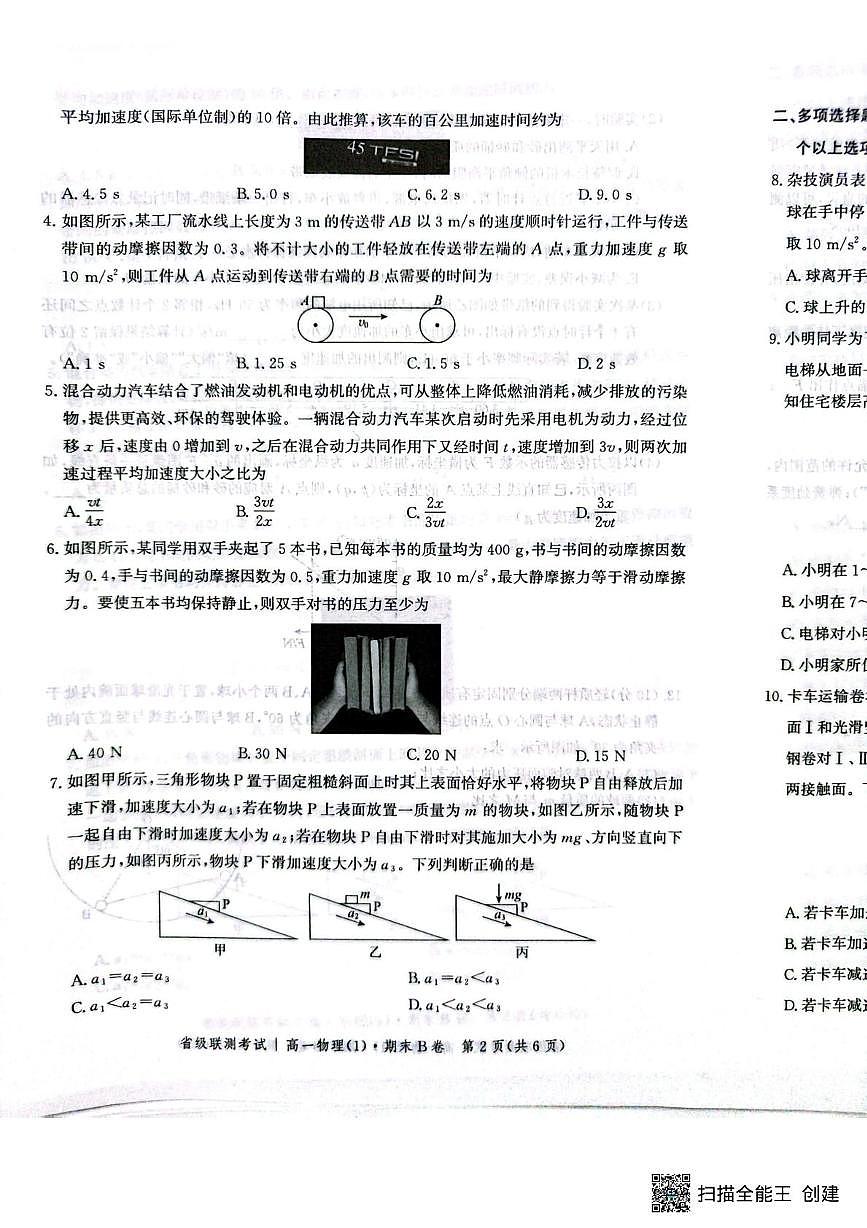 平均加速度(国际单位制)的10倍。由此推算,该车的百公里加速时间约为
45 TFSI
A. 4.5 s B. 5.0 s C. 6.2 s D. 9.0 s
4. 如图所示,某工厂流水线上长度为 3 m 的传送带 AB 以 3 m/s 的速度顺时针运行,工件与传送
带间的动摩擦因数为 0.3。将不计大小的工件轻放在传送带左端的 A 点,重力加速度 g 取
10 m/s²,则工件从 A 点运动到传送带右端的 B 点需要的时间为
A B
v₀
A. 1 s B. 1.25 s C. 1.5 s D. 2 s
5. 混合动力汽车结合了燃油发动机和电动机的优点,可从整体上降低燃油消耗,减少排放的污染
物,提供更高效、环保的驾驶体验。一辆混合动力汽车某次启动时先采用电机为动力,经过位
移 x 后,速度由 0 增加到 v,之后在混合动力共同作用下又经时间 t,速度增加到 3v,则两次加
速过程平均加速度大小之比为
A. vt/4x B. 3vt/2x C. 2x/3vt D. 3x/2vt
6. 如图所示,某同学用双手夹起了 5 本书,已知每本书的质量均为 400 g,书与书间的动摩擦因数
为 0.4,手与书间的动摩擦因数为 0.5,重力加速度 g 取 10 m/s²,最大静摩擦力等于滑动摩擦
力。要使五本书均保持静止,则双手对书的压力至少为
A. 40 N B. 30 N C. 20 N D. 15 N
7. 如图甲所示,三角形物块 P 置于固定粗糙斜面上时其上表面恰好水平,将物块 P 自由释放后加
速下滑,加速度大小为 a₁;若在物块 P 上表面放置一质量为 m 的物块,如图乙所示,随物块 P
一起自由下滑时加速度大小为 a₂;若在物块 P 自由下滑时对其施加大小为 mg、方向竖直向下
的压力,如图丙所示,物块 P 下滑加速度大小为 a₃。下列判断正确的是
P a₁ 甲
m P a₂ 乙
mg P a₃ 丙
A. a₁=a₂=a₃ B. a₁=a₂<a₃
C. a₁<a₂=a₃ D. a₁<a₂<a₃
省级联测考试 | 高一物理(1)·期末 B 卷 第 2 页(共 6 页)
二、多项选择
个以上选项
8. 杂技演员表
球在手中停
取 10 m/s²。
A. 球离开手
C. 球上升的
9. 小明同学为
电梯从地面
知住宅楼层高
A. 小明在 1~
B. 小明在 7~
C. 电梯对小明
D. 小明家所
10. 卡车运输卷
面Ⅰ和光滑
钢卷对Ⅰ、Ⅱ
两接触面。
A. 若卡车加
B. 若卡车加
C. 若卡车减
D. 若卡车减
扫描全能王 创建